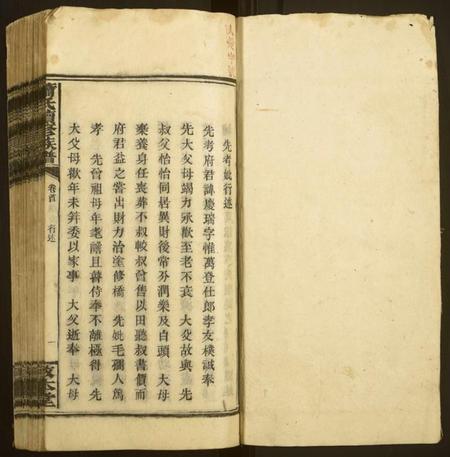 先考妣行述
先考府君諱慶瑞字惟萬登仕郎孝友樸誠奉
先大父母竭力承歡至老不衰 大父故與 先
叔父怡怡同居異財後常分潤樂及自頭 大母
棄養身任喪葬不以較叔曾售以田聽叔書價而
府君益之嘗出財力治塗修橋 先妣毛孺人篤
孝 先曾祖母年老 且瞽侍奉不離極得 先
大父母歡年未笄委以家事 大父逝奉 大母
氏 修族譜
卷首
行述
一
堂